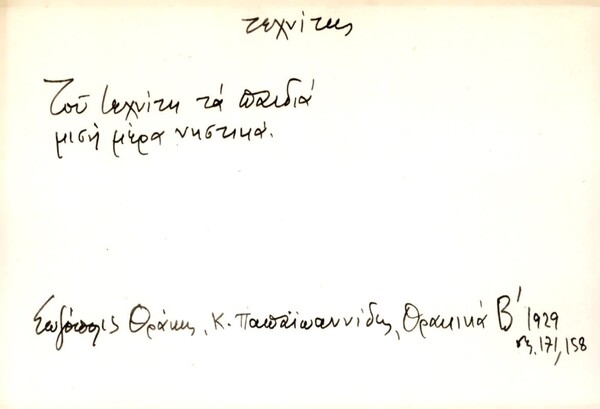 τεχνίτης
Τοῦ τεχνίτη τά παιδιά
μισή μέρα νηστικά.
Σωζόπολις Θράκης, Κ. Παπαϊωαννίδης, Θρακικά Β΄ 1929
σελ. 171, 158